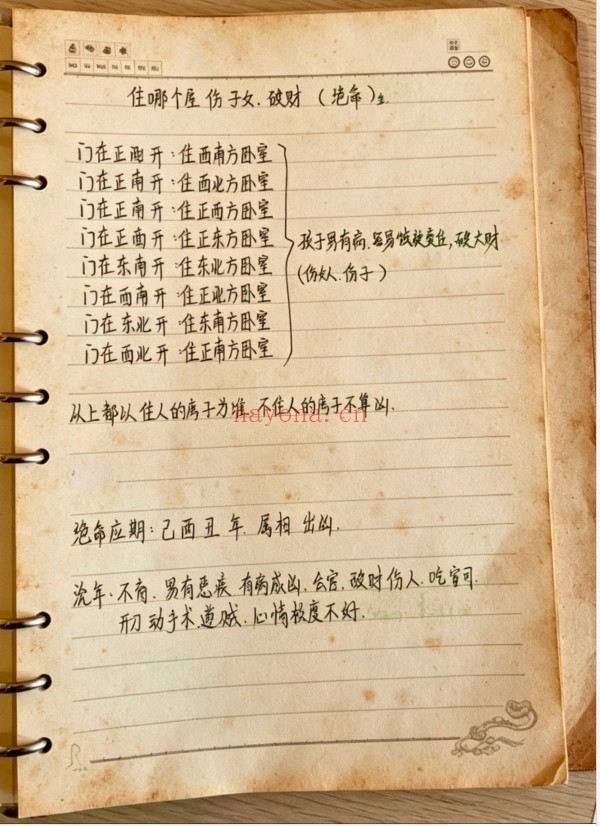 住哪个屋伤子女.破财（绝命）
门在正西开:住西南方卧室
门在正南开:住西北方卧室
门在正南开:住正西方卧室
门在正西开:住正东方卧室
门在东南开:住东北方卧室
门在西南开:住正北方卧室
门在东北开:住东南方卧室
门在西北开:住正南方卧室
孩子男有病.容易 破大财
(伤人.伤子)
以上都以住人的房子为准.不住人的房子不算凶.
hayona.cn
绝命应期:己酉丑年.属相出凶.
流年:不育.男有恶疾有病成凶.会官.破财伤人.吃官司.
开刀动手术.遭贼.心情极度不好.